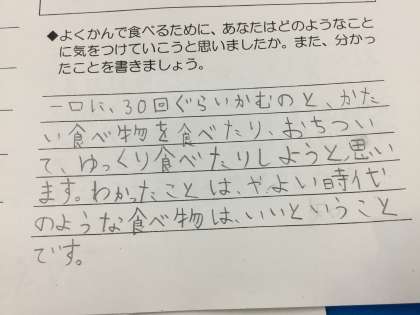 ◆よくかんで食べるために、あなたはどのようなこと
に気をつけていこうと思いましたか。また、分かっ
たことを書きましょう。
一口に、30回ぐらいかむのと、かた
い食べ物を食べたり、おちつい
て、ゆっくり食べたりしようと思い
ます。わかったことは、やよい時代
のような食べ物は、いいということ
です。